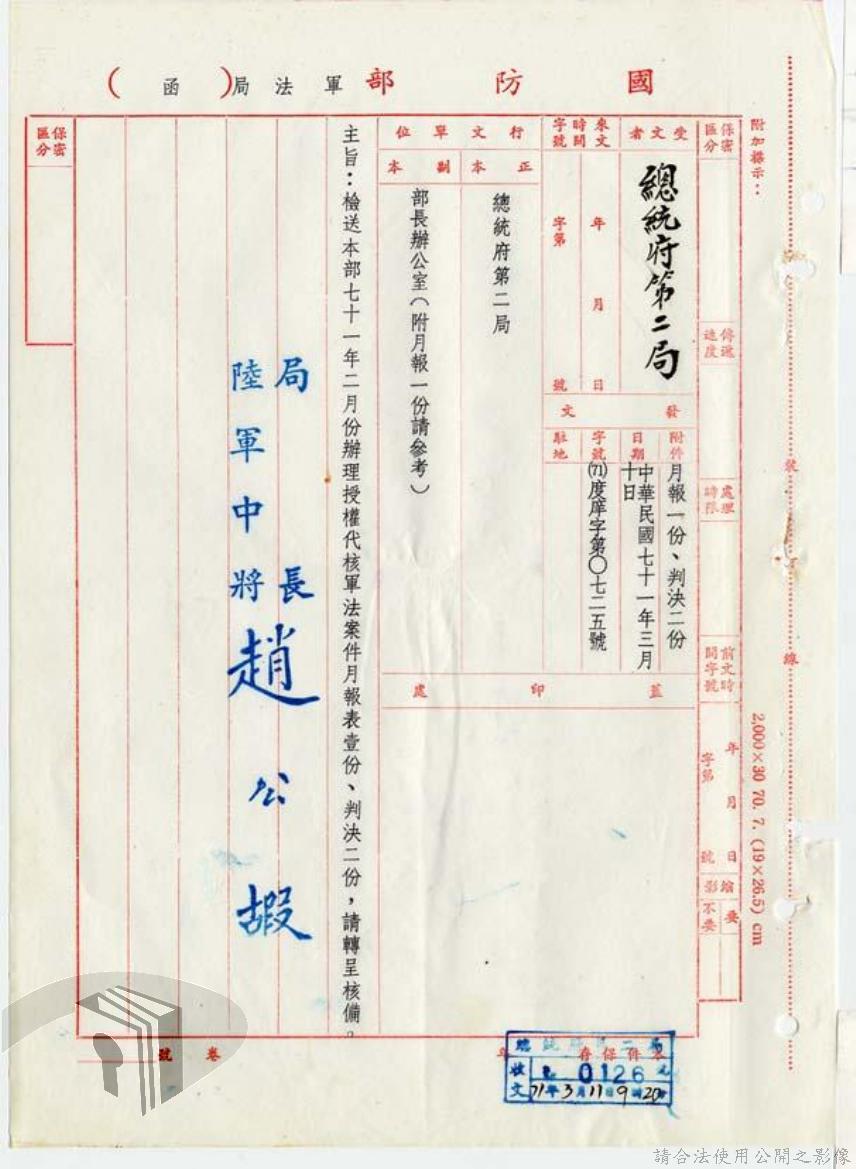 國防部軍法局(函)
附加標示：
保密區分
傳遞速度
處理時限
前文時間字號
年月日
字第號
縮影
要
不要
受文者
總統府第二局
來文時間字號
年月日
字第號
發文
附件
月報一份、判決二份
日期
中華民國七十一年三月十日
字號
(71)度庠字第〇七二五號
駐地
行文單位
正本
總統府第二局
副本
部長辦公室(附月報一份請參考)
蓋印處
主旨：檢送本部七十一年二月份辦理授權代核軍法案件月報表壹份、判決二份，請轉呈核備。
局長
陸軍中將趙公嘏
保密區分
本件保存年
卷號
總統府第二局
收文
0126
71年3月11日9時20分
線
2,000×30 70. 7. (19×26.5) cm
請合法使用公開之影像